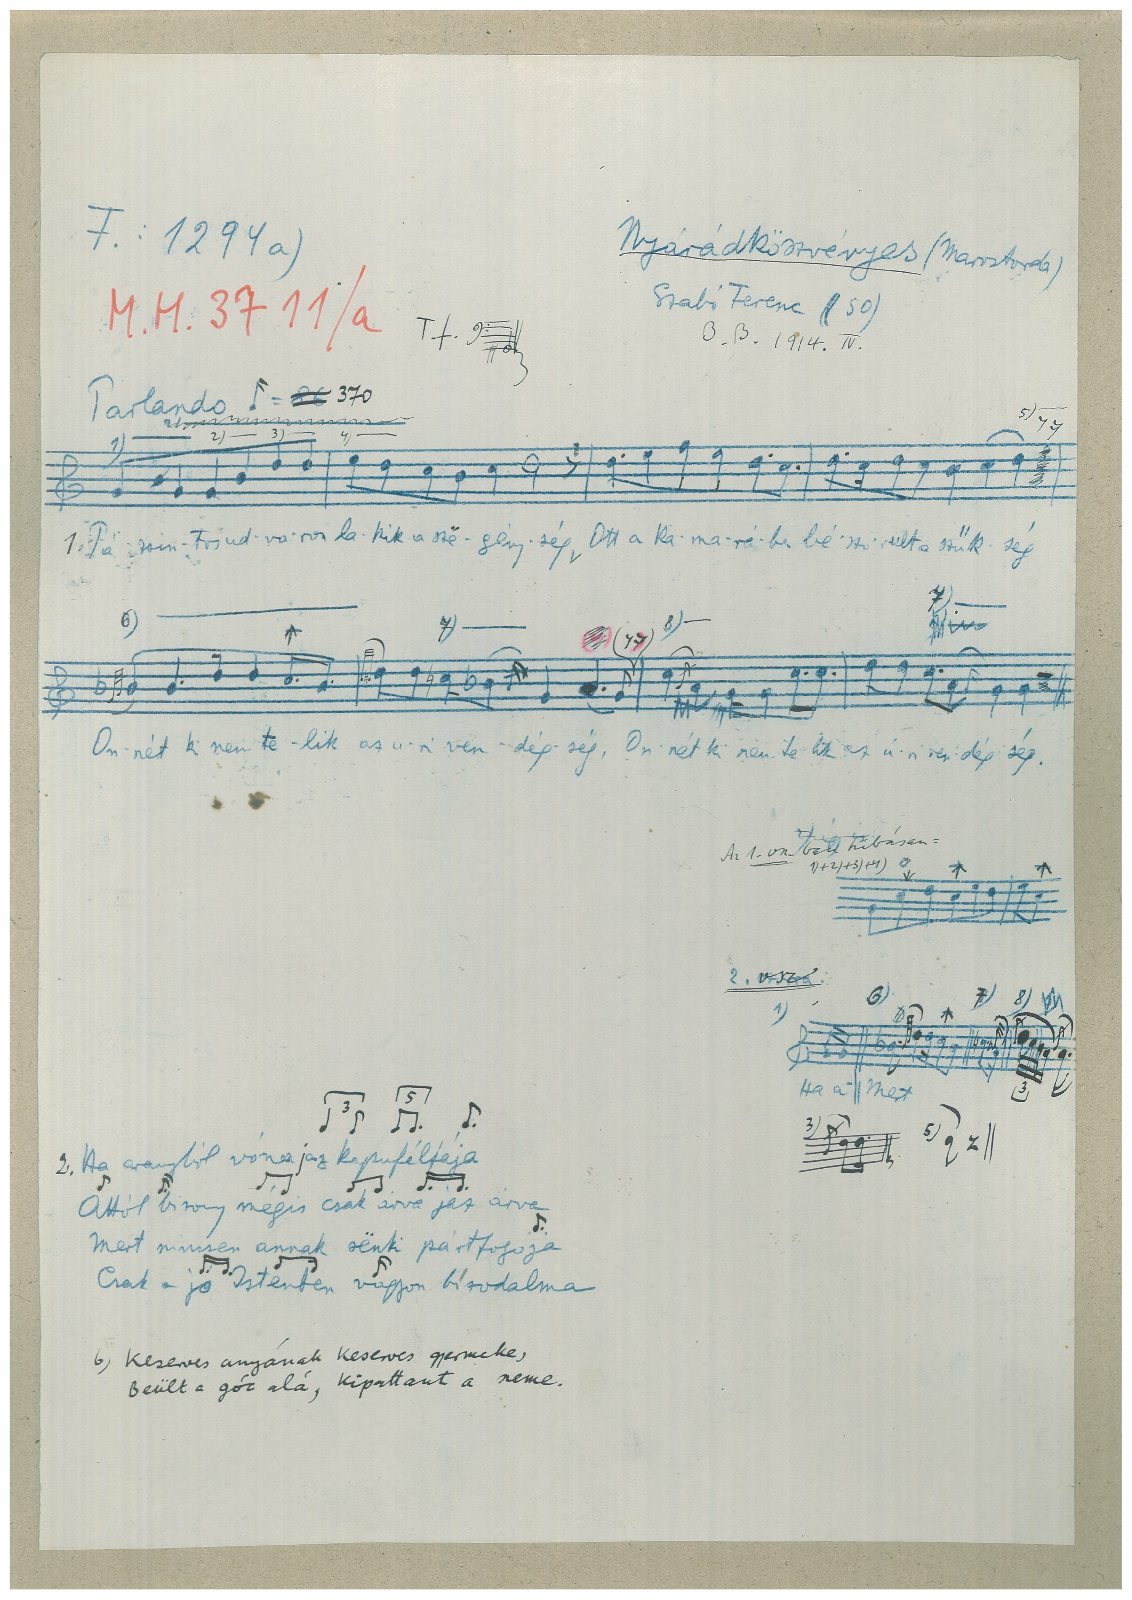 F.: 1294a)
M.H. 3711/a
Nyárádköszvényes (Marostorda)
Szabó Ferenc (50)
B.B. 1914. IV.
T.f.
Parlando ♪= 370
1) 2) 3) 4) 5)
1. Pá-szin-tos ud-va-ron la-kik a szë-gény-ség, Ott a ka-ma-rá-ba bé-szo-rult a szűk-ség
6) 7) 8) 7)
On-nét ki nem te-lik az u-ri ven-dég-ség, On-nét ki nem te-lik az ú-ri ven-dég-ség.
Az 1. vsz. hibásan=
1)+2)+3)+4)
2. vsz.
1) 6) 7) 8)
Ha a- Mert
3
3) 5)
3 5
2. Ha aranyból vóna jaz kapufélfája
Attól bizony mégis csak árva jaz árva
Mert nincsen annak sënki pártfogója
Csak a jó Istenben vagyon bizodalma
b) Keserves anyának keserves gyermeke,
Beült a góc alá, kipattant a neme.